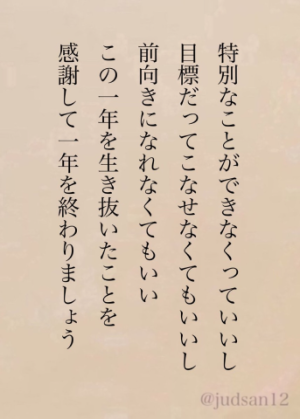 特別なことができなくっていいし
目標だってこなせなくてもいいし
前向きになれなくてもいい
この一年を生き抜いたことを
感謝して一年を終わりましょう
@judsan12